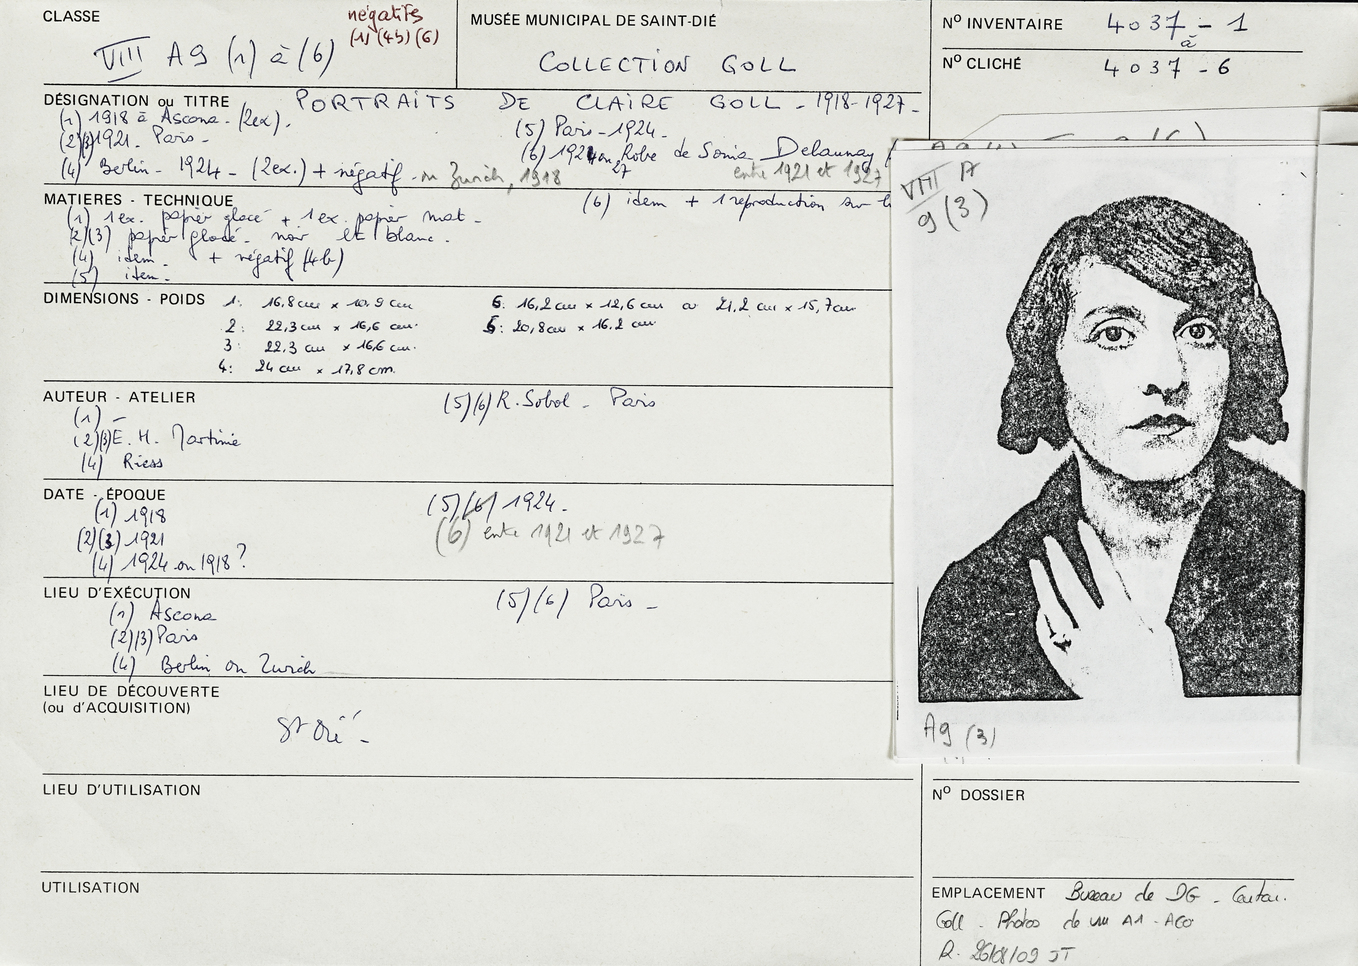 CLASSE
négatifs
(1) (4b) (6)
VIII A9 (1) à (6)
MUSÉE MUNICIPAL DE SAINT-DIÉ
COLLECTION GOLL
Nº INVENTAIRE 4037 - 1
à
Nº CLICHÉ 4037 - 6
DÉSIGNATION ou TITRE PORTRAITS DE CLAIRE GOLL - 1918-1927-
(1) 1918 à Ascona - (2ex).
(2)(3) 1921. Paris -
(4) Berlin - 1924 - (2ex.) + négatif - ou Zurich, 1918
(5) Paris - 1924 -
(6) 1924 ou 27 Robe de Sonia Delaunay
entre 1921 et 1927
MATIERES - TECHNIQUE
(1) 1 ex. papier glacé + 1 ex. papier mat -
2)(3) papier glacé - noir et blanc.
(4) idem - + négatif (4b)
(5) idem -
(6) idem + 1 reproduction sur
DIMENSIONS - POIDS
1: 16,8 cm × 10,9 cm
2: 22,3 cm × 16,6 cm.
3: 22,3 cm × 16,6 cm.
4: 24 cm × 17,8 cm.
6: 16,2 cm × 12,6 cm a 21,2 cm × 15,7 cm
5: 20,8 cm × 16,2 cm
AUTEUR - ATELIER
(1) -
(2)(3) E. H. Martinie
(4) Riess
(5)(6) R. Sobol - Paris
DATE - ÉPOQUE
(1) 1918
(2)(3) 1921
(4) 1924 ou 1918?
(5)(6) 1924 -
(6) entre 1921 et 1927
LIEU D'EXÉCUTION
(1) Ascona
(2)(3) Paris
(4) Berlin ou Zurich
(5)(6) Paris -
LIEU DE DÉCOUVERTE
(ou d'ACQUISITION)
St Dié -
LIEU D'UTILISATION
UTILISATION
VIII A
9 (3)
A9 (3)
Nº DOSSIER
EMPLACEMENT Bureau de DG -
Goll - Photos de A1 - A60
R. 26/08/09 JT